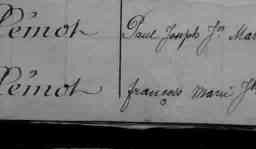 Pémot Paul Joseph Jn Mar
Pémot françois Marie Jh